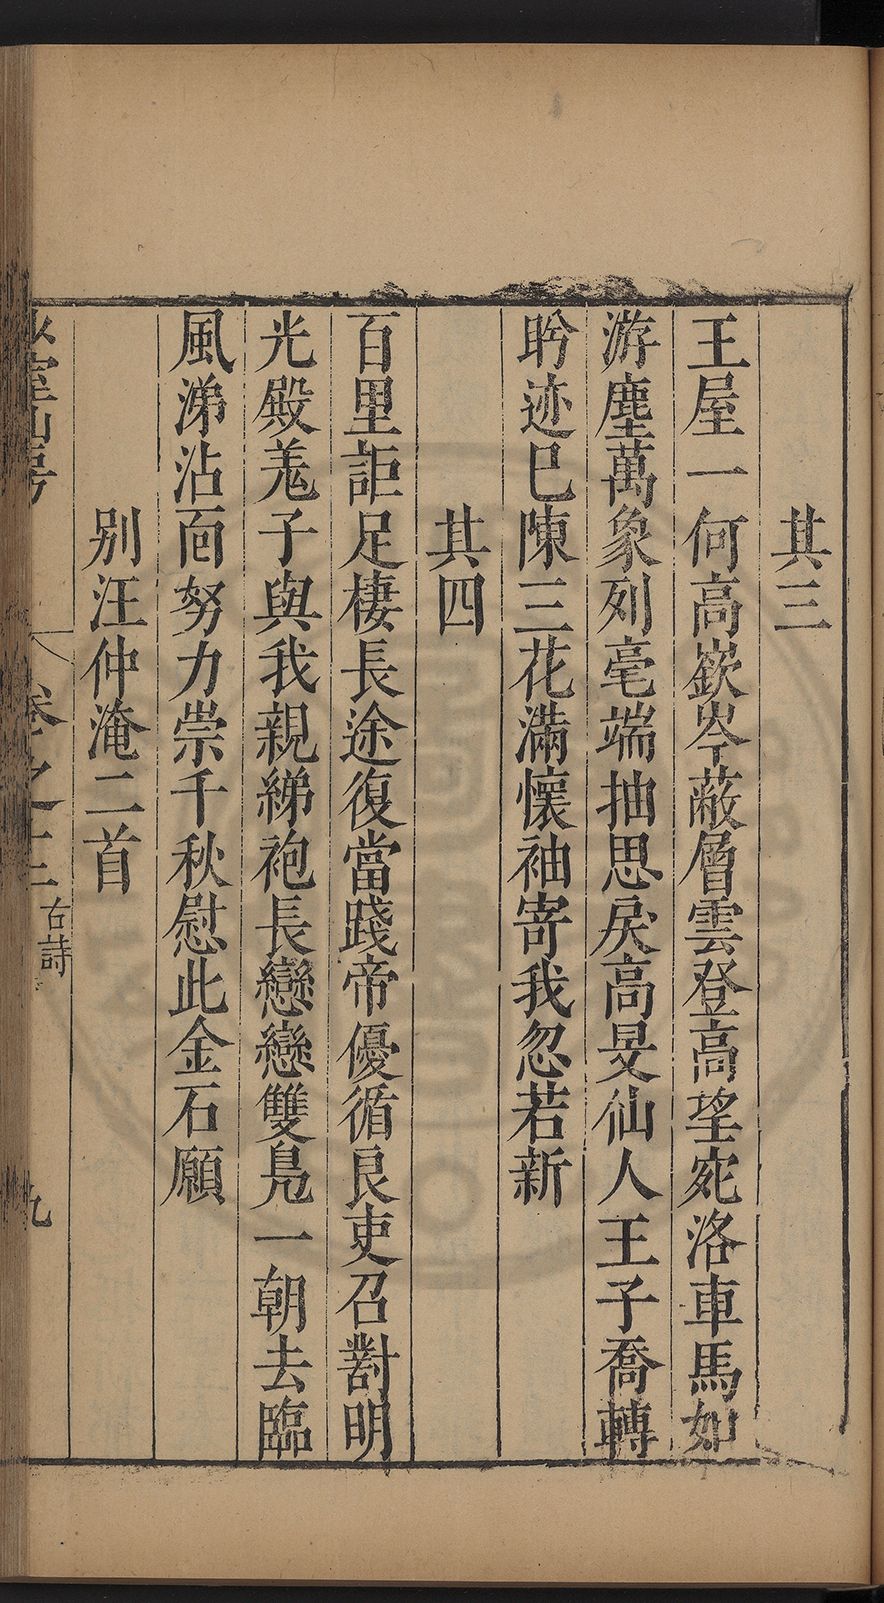 其三
王屋一何高嶔岑蔽層雲登高望宛洛車馬如
游塵萬象列毫端抽思戾高旻仙人王子喬轉
盻迹已陳三花滿懷袖寄我忽若新
其四
百里詎足棲長途復當踐帝優循良吏召對明
光殿羗子與我親綈袍長戀戀雙鳬一朝去臨
風涕沾靣努力崇千秋慰此金石願
別汪仲淹二首
室山房
卷之十三
古詩
九